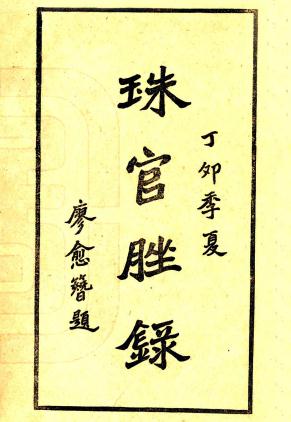 丁夘季夏
珠官脞錄
廖愈簪題